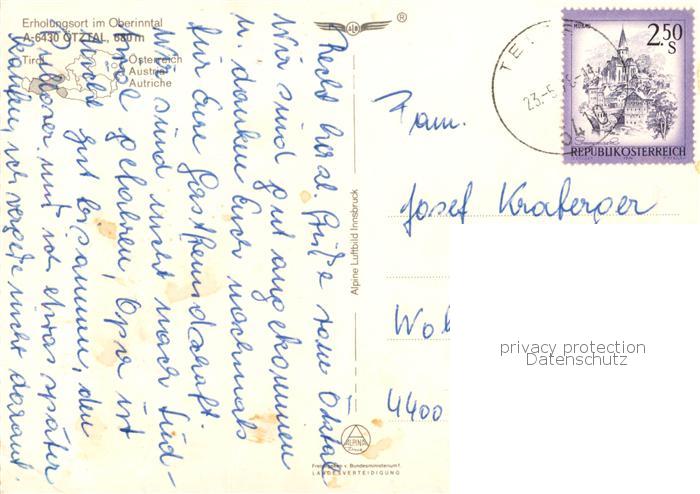 Erholungsort im Oberinntal
A-6430 ÖTZTAL, 680 m
Tirol
Österreich
Austria
Autriche
®
Recht herzl. Grüße vom Ötztal
Wir sind gut angekommen
u. danken Euch nochmals
für Eure Gastfreundschaft
Wir sind nicht nach Süd-
gefahren, Opa ist
nicht gut beisammen, den
muß ich etwas später
kaufen, ich vergesse nicht darauf.
Alpine Luftbild Innsbruck
ALPINA
Druck
Freigegeben v. Bundesministerium f.
LANDESVERTEIDIGUNG
MURAU
2.50
S
REPUBLIK ÖSTERREICH
TE
23.-5.
Fam.
Josef Kraberger
Wo
4400
privacy protection
Datenschutz